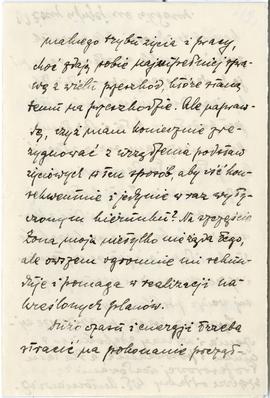 malnego trybu życia i pracy,
choć zdaję sobie najzupełniej spra-
wę z wielu przeszkód, które staną
temu na przeszkodzie. Ale napraw-
dę, czyż mam koniecznie zre-
zygnować z urządzenia podstaw
życiowych w ten sposób, aby iść kon-
sekwentnie i jedynie w raz wyty-
czonym kierunku? Na szczęście
żona moja nie tylko nie żąda tego,
ale owszem ogromnie mi sekun-
duje i pomaga w realizacji na-
kreślonych planów.
Dużo czasu i energii trzeba
stracić na pokonanie przesz-